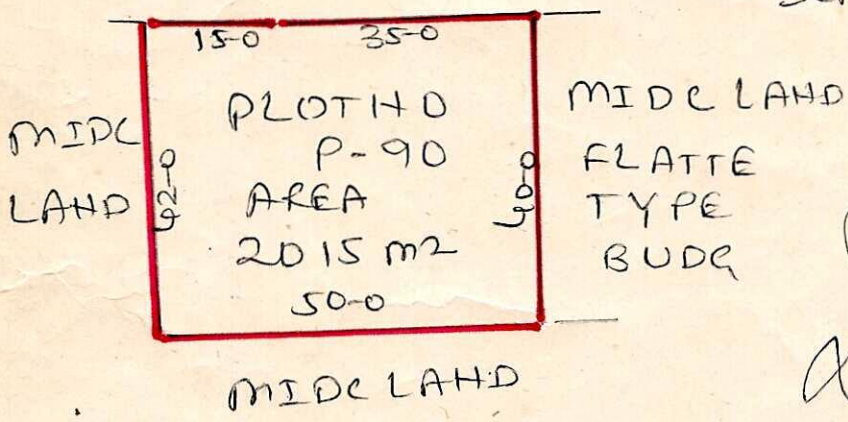 15-0 35-0
MIDC
LAND
42-0
PLOT NO
P-90
AREA
2015 m2
50-0
40-0
MIDC LAND
FLATTE
TYPE
BUDG
MIDC LAND